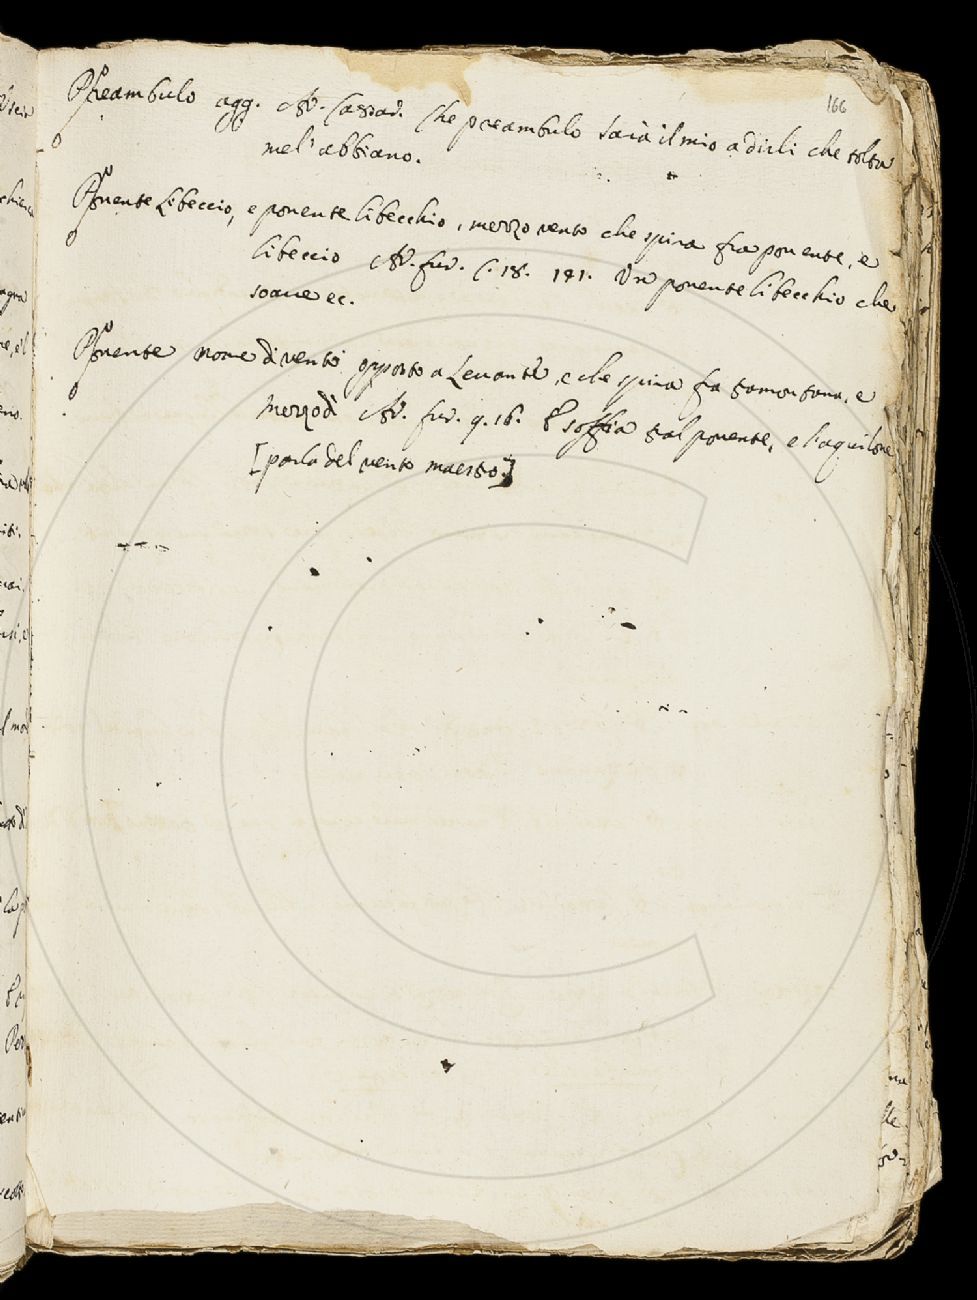 166
Preambulo agg. Ar. Cassar. Che preambulo sarà il mio a dirli che tolta
mel' abbiano.
Ponente Libeccio, e ponente libecchio, mezzo vento che spira fra ponente, e
libeccio Ar. fur. C. 18. 141. Un ponente libecchio che
soave ec.
Ponente nome di vento opposto a Levante, e che spira fra tramontana, e
mezzodì Ar. fur. 9. 16. E soffia tal ponente, e l'aquilone
[parla del vento maestro]